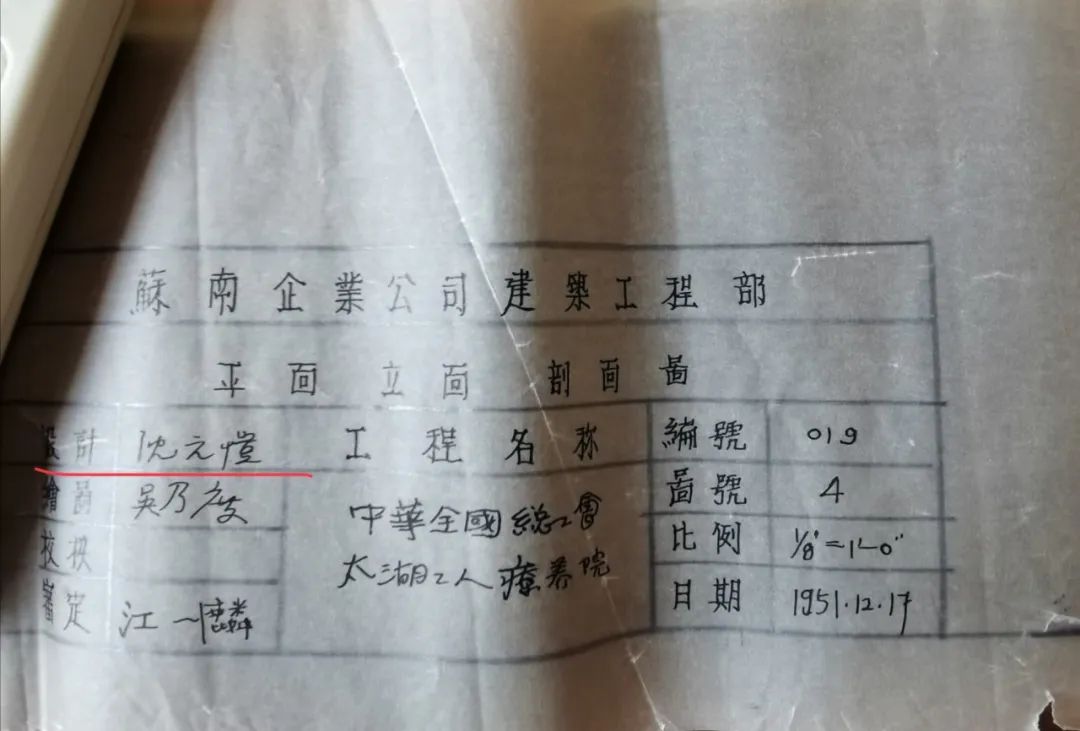 蘇南企業公司建築工程部
平面 立面 剖面圖
設計 沈元愷 工程名称 編號 019
繪圖 吳乃度 中華全國總工會 圖號 4
校 太湖工人療养院 比例 1/8"=1'-0"
審定 江一麟 日期 1951.12.17